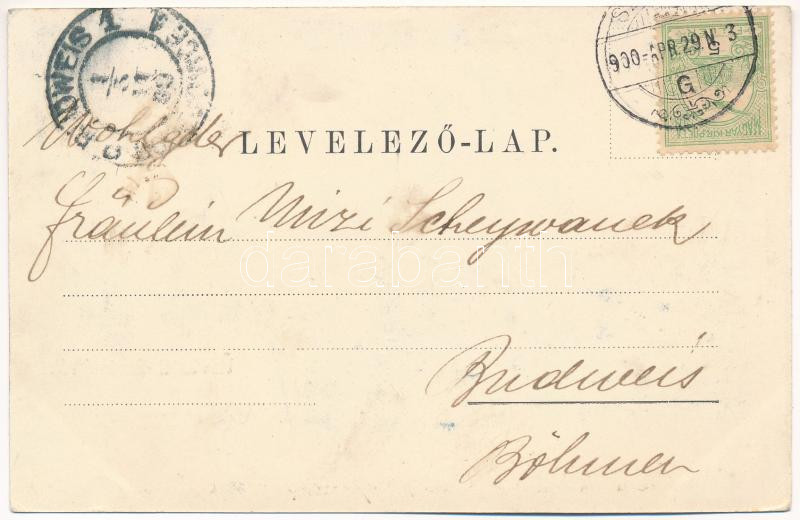 BUDWEIS 1
900-APR.29 N 3
G
MAGYAR KIR. POSTA
5
LEVELEZŐ-LAP.
Wohlgeb
Fräulein Mizi Scheywanek
darabanth
Budweis
Böhmen